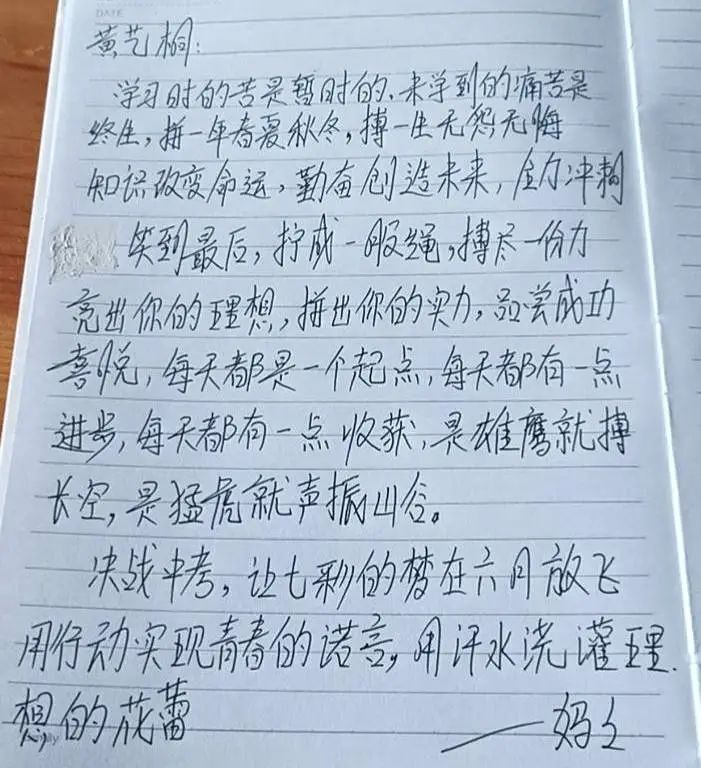 DATE
黄艺桐:
学习时的苦是暂时的、未学到的痛苦是
终生,拼一年春夏秋冬,搏一生无怨无悔
知识改变命运,勤奋创造未来,全力冲刺
笑到最后,拧成一股绳,搏尽一份力
亮出你的理想,拼出你的实力,品尝成功
喜悦,每天都是一个起点,每天都有一点
进步,每天都有一点收获,是雄鹰就搏
长空,是猛虎就声振山谷。
决战中考,让七彩的梦在六月放飞
用行动实现青春的诺言,用汗水浇灌理
想的花蕾
——妈々